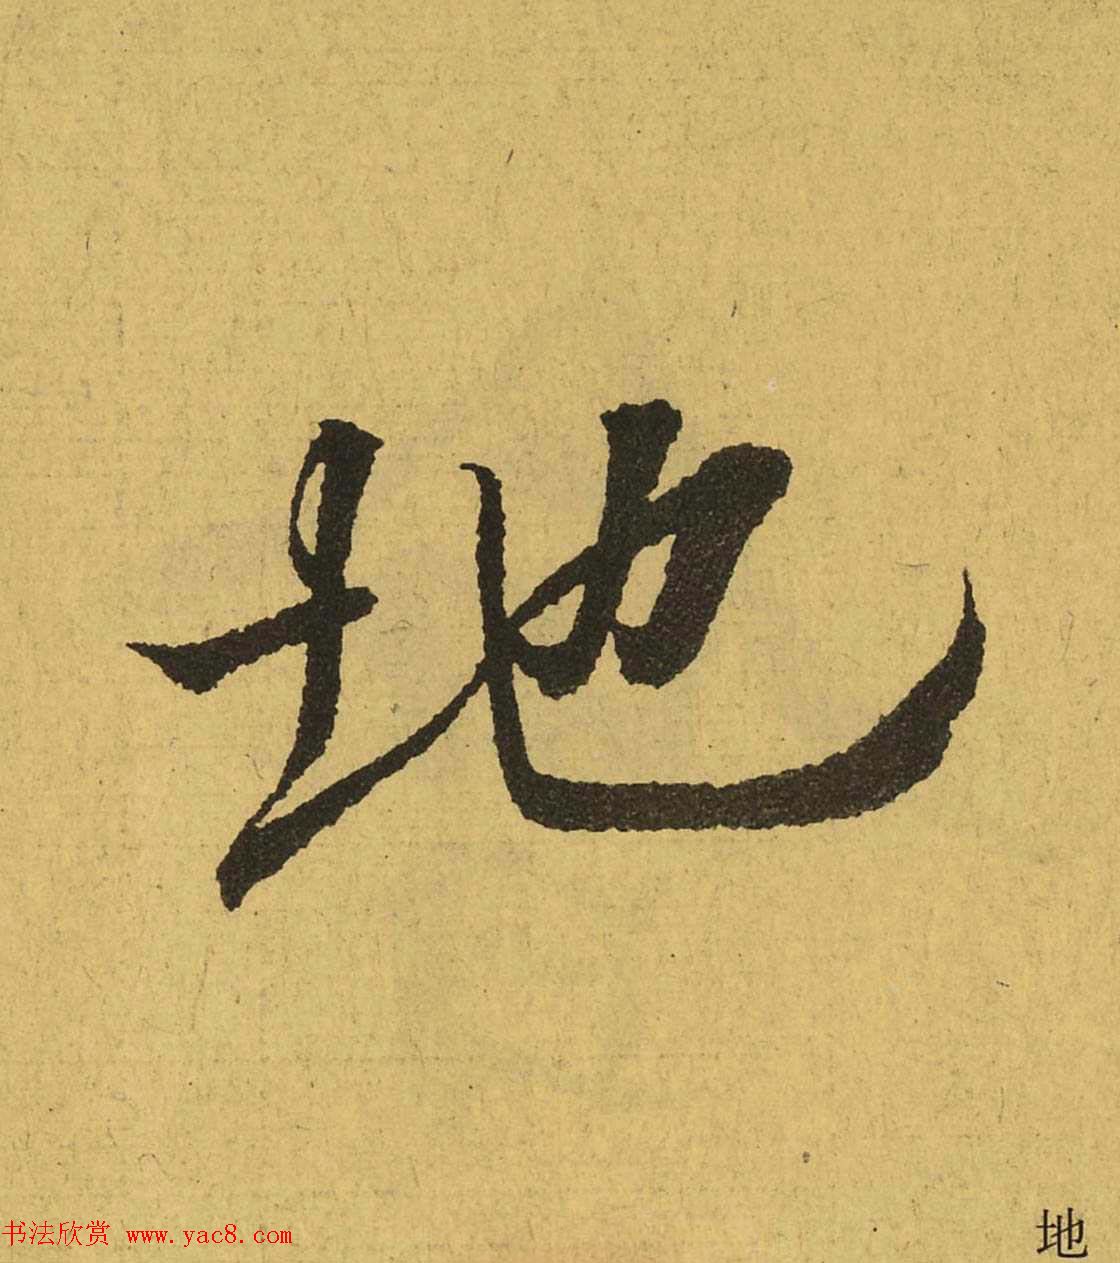 地
书法欣赏 www.yac8.com
地